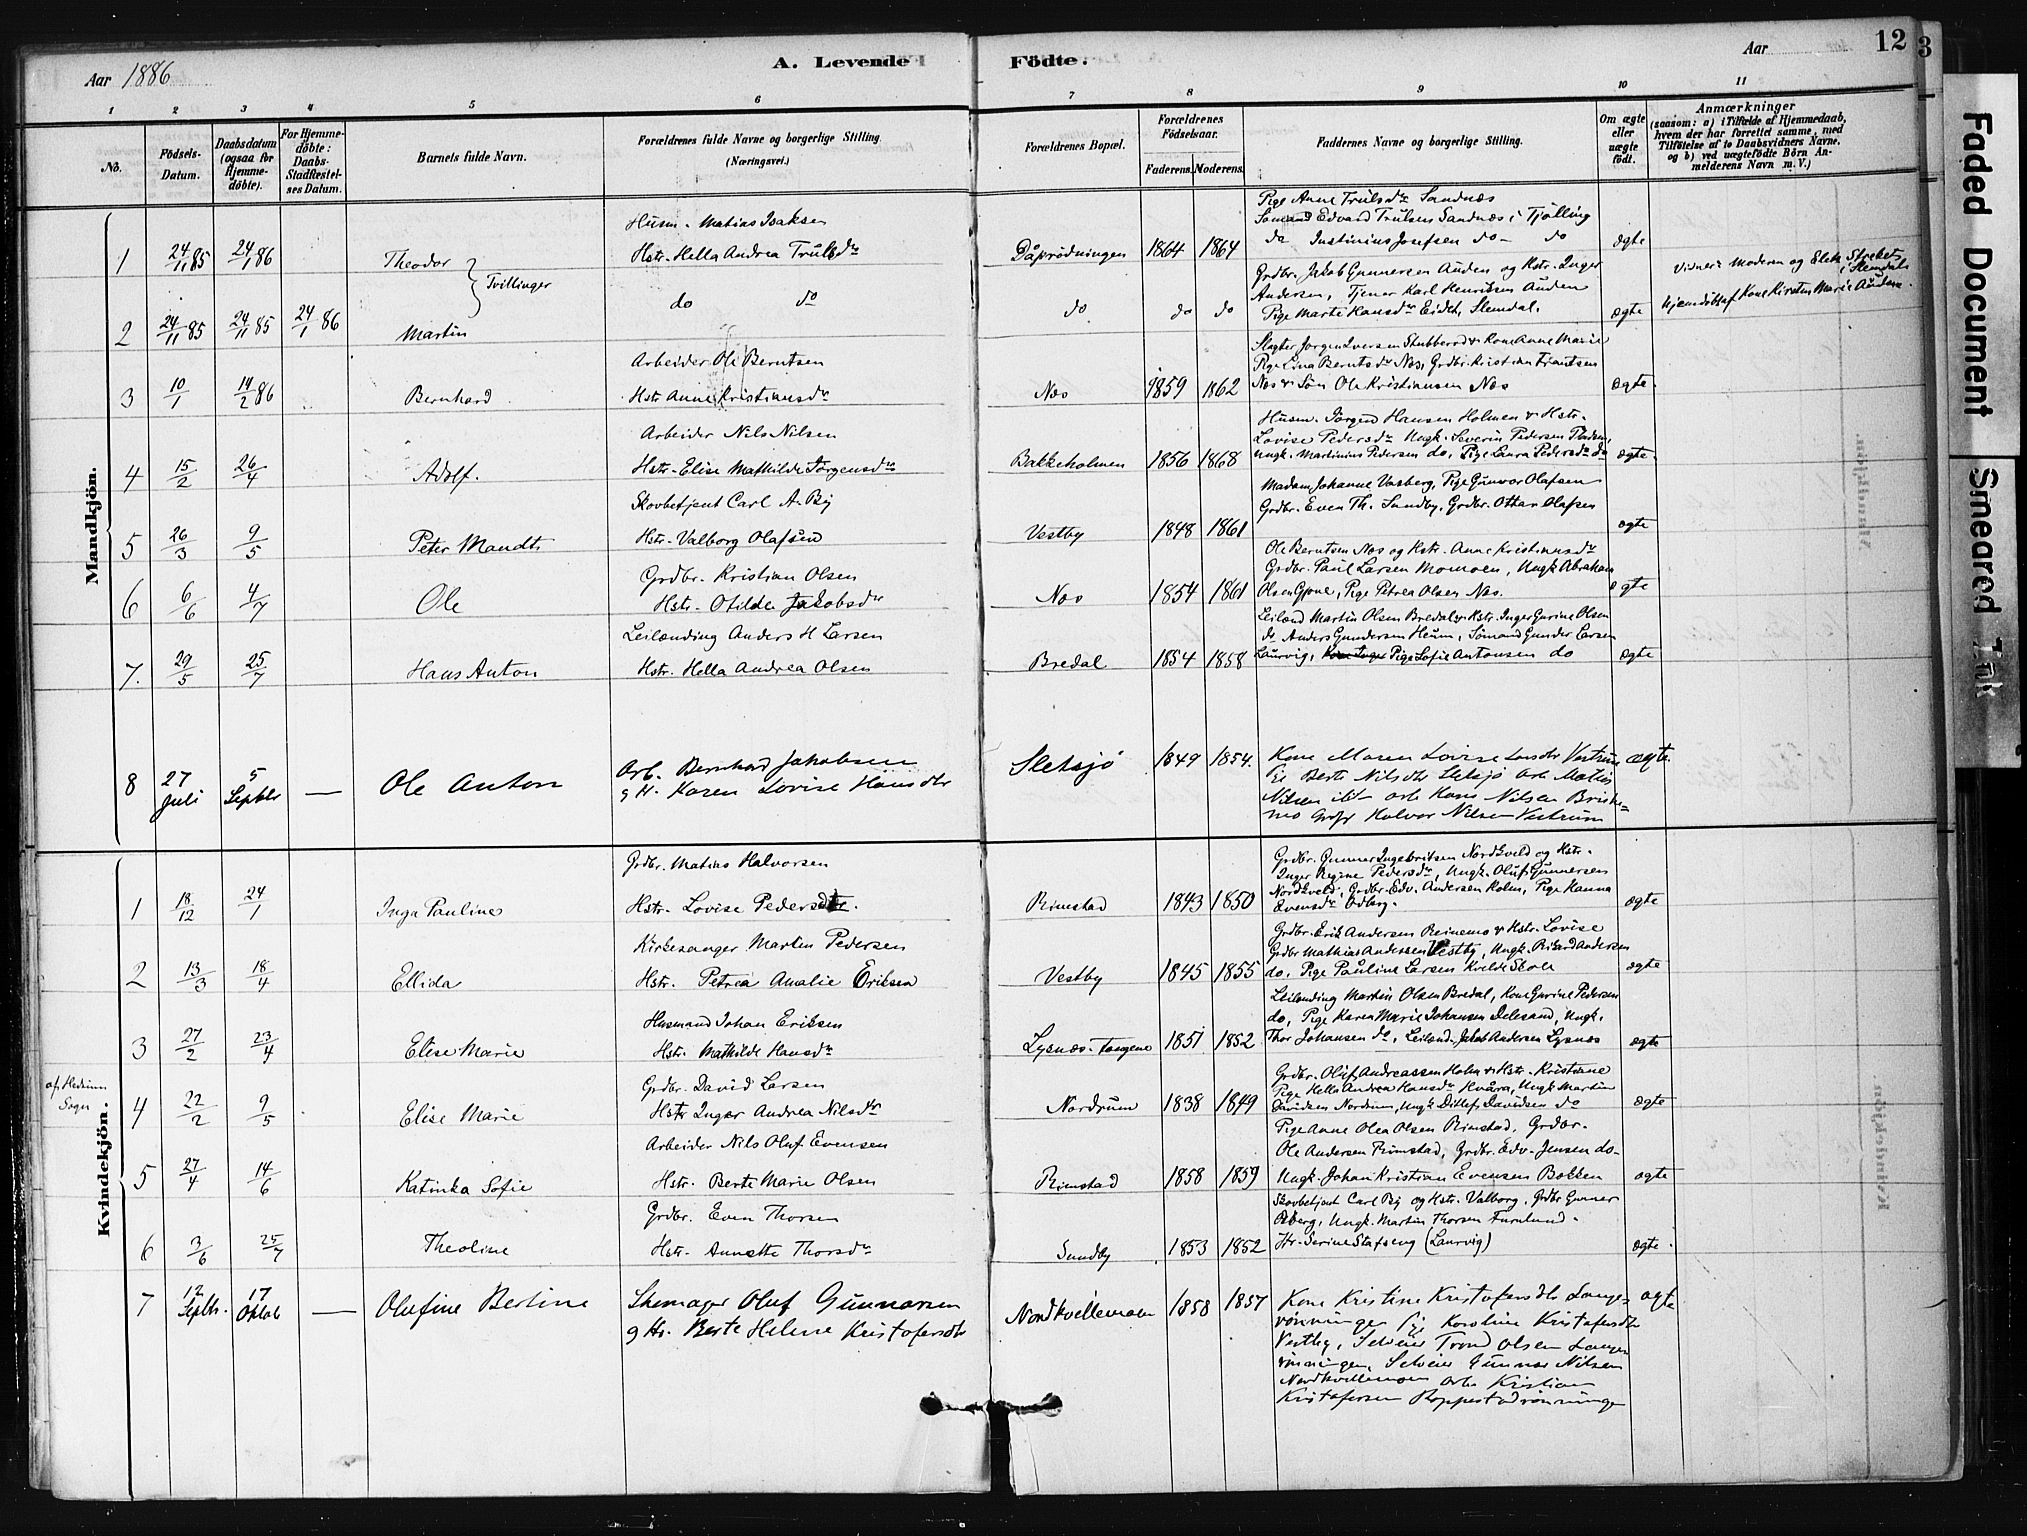 Aar 1886
A. Levende Födte.
Aar
12
3
Faded Document Smeared Ink
1 2 3 4 5 6 7 8 9 10 11
No.
Födsels-Datum.
Daabsdatum (ogsaa for Hjemme-döbte).
For Hjemme-döbte: Daabs-Stadfæstel-ses Datum.
Barnets fulde Navn.
Forældrenes fulde Navne og borgerlige Stilling. (Næringsvei.)
Forældrenes Bopæl.
Forældrenes Födselsaar.
Faderens. Moderens.
Faddernes Navne og borgerlige Stilling.
Om ægte eller uægte födt.
Anmærkninger (saasom: a) i Tilfælde af Hjemmedaab, hvem der har forrettet samme, med Tilföielse af to Daabsvidners Navne, og b) ved uægtefödte Börn An-melderens Navn m. V.)
Mandkjön.
1 24/11 85 24/1 86 Theodor } Tvillinger
Husm. Matias Isaksen
Hstr. Hella Andrea Trulsdr
Dåprødningen 1864 1864
Pige Anne Trulsdr Sandnæs
Sømand Edvard Trulsen Sandnæs i Tjølling
do Justinius Josefsen do do
ægte
2 24/11 85 24/11 85 24/1 86 Martin
do do
do do do
Grdbr. Jakob Gunnersen Auden og Hstr. Inger
Andersen, Tjener Karl Henriksen Auden
Pige Marte Hansdr Eidet, Slemdal.
ægte
Vidner: Moderen og Elen
i Slemdal
hjemdøbt af Kone Kirsten Marie Auden.
3 10/1 14/2 86 Bernhard
Arbeider Ole Berntsen
Hstr Anne Kristiansdr
Næs 1859 1862
Slagter Jørgen Iversen Stubberød & Kone Anne Marie
Pige Lina Berntsdr Næs, Grdbr. Kristian Frantsen
Næs & Søn Ole Kristiansen Næs
ægte.
4 15/2 26/4 Adolf.
Arbeider Nils Nilsen
Hstr. Elise Mathilde Jørgensdr
Bakkeholmen 1856 1868
Husm. Jørgen Hansen Holmen & Hstr.
Lovise Pedersdr Ungk. Severin Pedersen
Ungk. Martinius Pedersen do, Pige Laura Pedersdr do
ægte.
5 26/3 9/5 Peter Mandt
Skovbetjent Carl A. Bij
Hstr. Valborg Olafsen
Vestby 1848 1861
Madam Johanne Vasberg, Pige Gunvor Olafsen
Grdbr. Even Th. Sundby, Grdbr. Ottar Olafsen
ægte
6 6/6 4/7 Ole
Grdbr. Kristian Olsen
Hstr. Otilde Jakobsdr
Næs 1854 1861
Ole Berntsen Næs og Hstr. Anne Kristiansdr
Grdbr. Paul Larsen Momoen, Ungk Abraham
Olsen Gjone, Pige Petrea Olsen Næs.
ægte
7. 29/5 25/7 Hans Anton
Leilænding Anders H Larsen
Hstr. Hella Andrea Olsen
Bredal 1854 1858
Leilænd Martin Olsen Bredal & Hstr. Inger Gurine Olsen
do, Anders Gundersen Heum, Sømand Gunder Larsen
Laurvig, Pige Sofie Antonsen do
ægte
8 27 Juli 5 Septbr — Ole Anton
Arb. Bernhard Jakobsen
g H. Karen Lovise Hansdtr
Sletsjø 1849 1854.
Kone Maren Lovise Larsdtr Vestrum
Pi Berte Nilsdtr Sletsjø Arb Mathis
Nilsen ibd. arb Hans Nilsen Briske=
mo Grdfr Halvor Nilsen Vestrum
ægte.
Kvindekjön.
1 18/12 24/1 Inga Pauline
Grdbr. Matias Halvorsen
Hstr. Lovise Pedersdtr.
Rimstad 1843 1850
Grdbr. Gunner Ingebritsen Nordkveld og Hstr.
Inger Regine Pedersdr, Ungk. Oluf Gunnersen
Nordkveld, Grdbr. Edv. Andersen Holm, Pige Hanna
Evensdr Odberg.
ægte
2 13/3 18/4 Ellida
Kirkesanger Martin Pedersen
Hstr. Petrea Amalie Eriksen
Vestby 1845 1855
Grdbr. Erik Andersen Reinemo & Hstr. Lovise
Grdbr Mathias Andersen Vestby, Ungk. Rikard Andersen
do, Pige Pauline Larsen Kvelde Skole
ægte
3 27/2 23/4 Elise Marie
Husmand Johan Eriksen
Hstr. Mathilde Hansdr
Lysnæs-tangene 1851 1852
Leilænding Martin Olsen Bredal, Kone Gurine Pedersen
do, Pige Karen Marie Johansen Delesand, Ungk.
Thor Johansen do, Leilænd Jakob Andersen Lysnæs
ægte
af Hedrum Sogn
4 22/2 9/5 Elise Marie
Grdbr. David Larsen
Hstr Inger Andrea Nilsdtr
Nordrum 1838 1849
Grdbr. Oluf Andreassen Holm & Hstr. Kristiane
Pige Hella Andrea Hansdr Kvåra, Ungk Martin
Davidsen Nordrum, Ungk Ditlef Davidsen do
ægte
5 27/4 14/6 Katinka Sofie
Arbeider Nils Oluf Evensen
Hstr. Berte Marie Olsen
Rimstad 1858 1859
Pige Anne Olea Olsen Rimstad, Grdbr.
Ole Andersen Rimstad, Grdbr. Edv. Jensen do.
Ungk. Johan Kristian Evensen Bakken
ægte
6 3/6 25/7 Theoline
Grdbr. Even Thorsen
Hstr. Annette Thorsdr
Sundby 1853 1852
Skovbetjent Carl Bij og Hstr. Valborg, Grdbr Gunner
Odberg, Ungk. Martin Thorsen Furulund.
Fr. Serine Stafseng (Laurvig)
ægte.
7 12 Septbr. 17 Oktob — Olufine Bertine
Skomager Oluf Gunnarsen
g Hu. Berte Helene Kristofersdtr
Nordkvellemoen 1858 1857
Kone Kristine Kristofersdtr Lange=
rønningen Pig Karoline Kristofersdtr
Vestby, Selveier Trond Olsen Lange
rønningen, Selveier Gunnar Nilsen
Nordkvellemoen arb Kristian
Kristofersen Roppestadrønningen
ægte